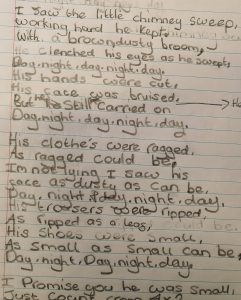 I saw the little chimney sweep,
working hard he kept,
With a brocondusty broom,
He clenched his eyes as he swept,
Day, night, day, night, day.
His hands were cut,
His face was bruised,
But he still carried on → He
Day, night, day, night, day.
His clothe's were ragged,
As ragged could be,
I'm not lying I saw his
face as dusty as can be,
Day, night, day, night, day.
His trousers were ripped,
As ripped as a leas,
His Shoes were small,
As small as small can be,
Day, night, Day, night, day,
I Promise you he was small,
Just count